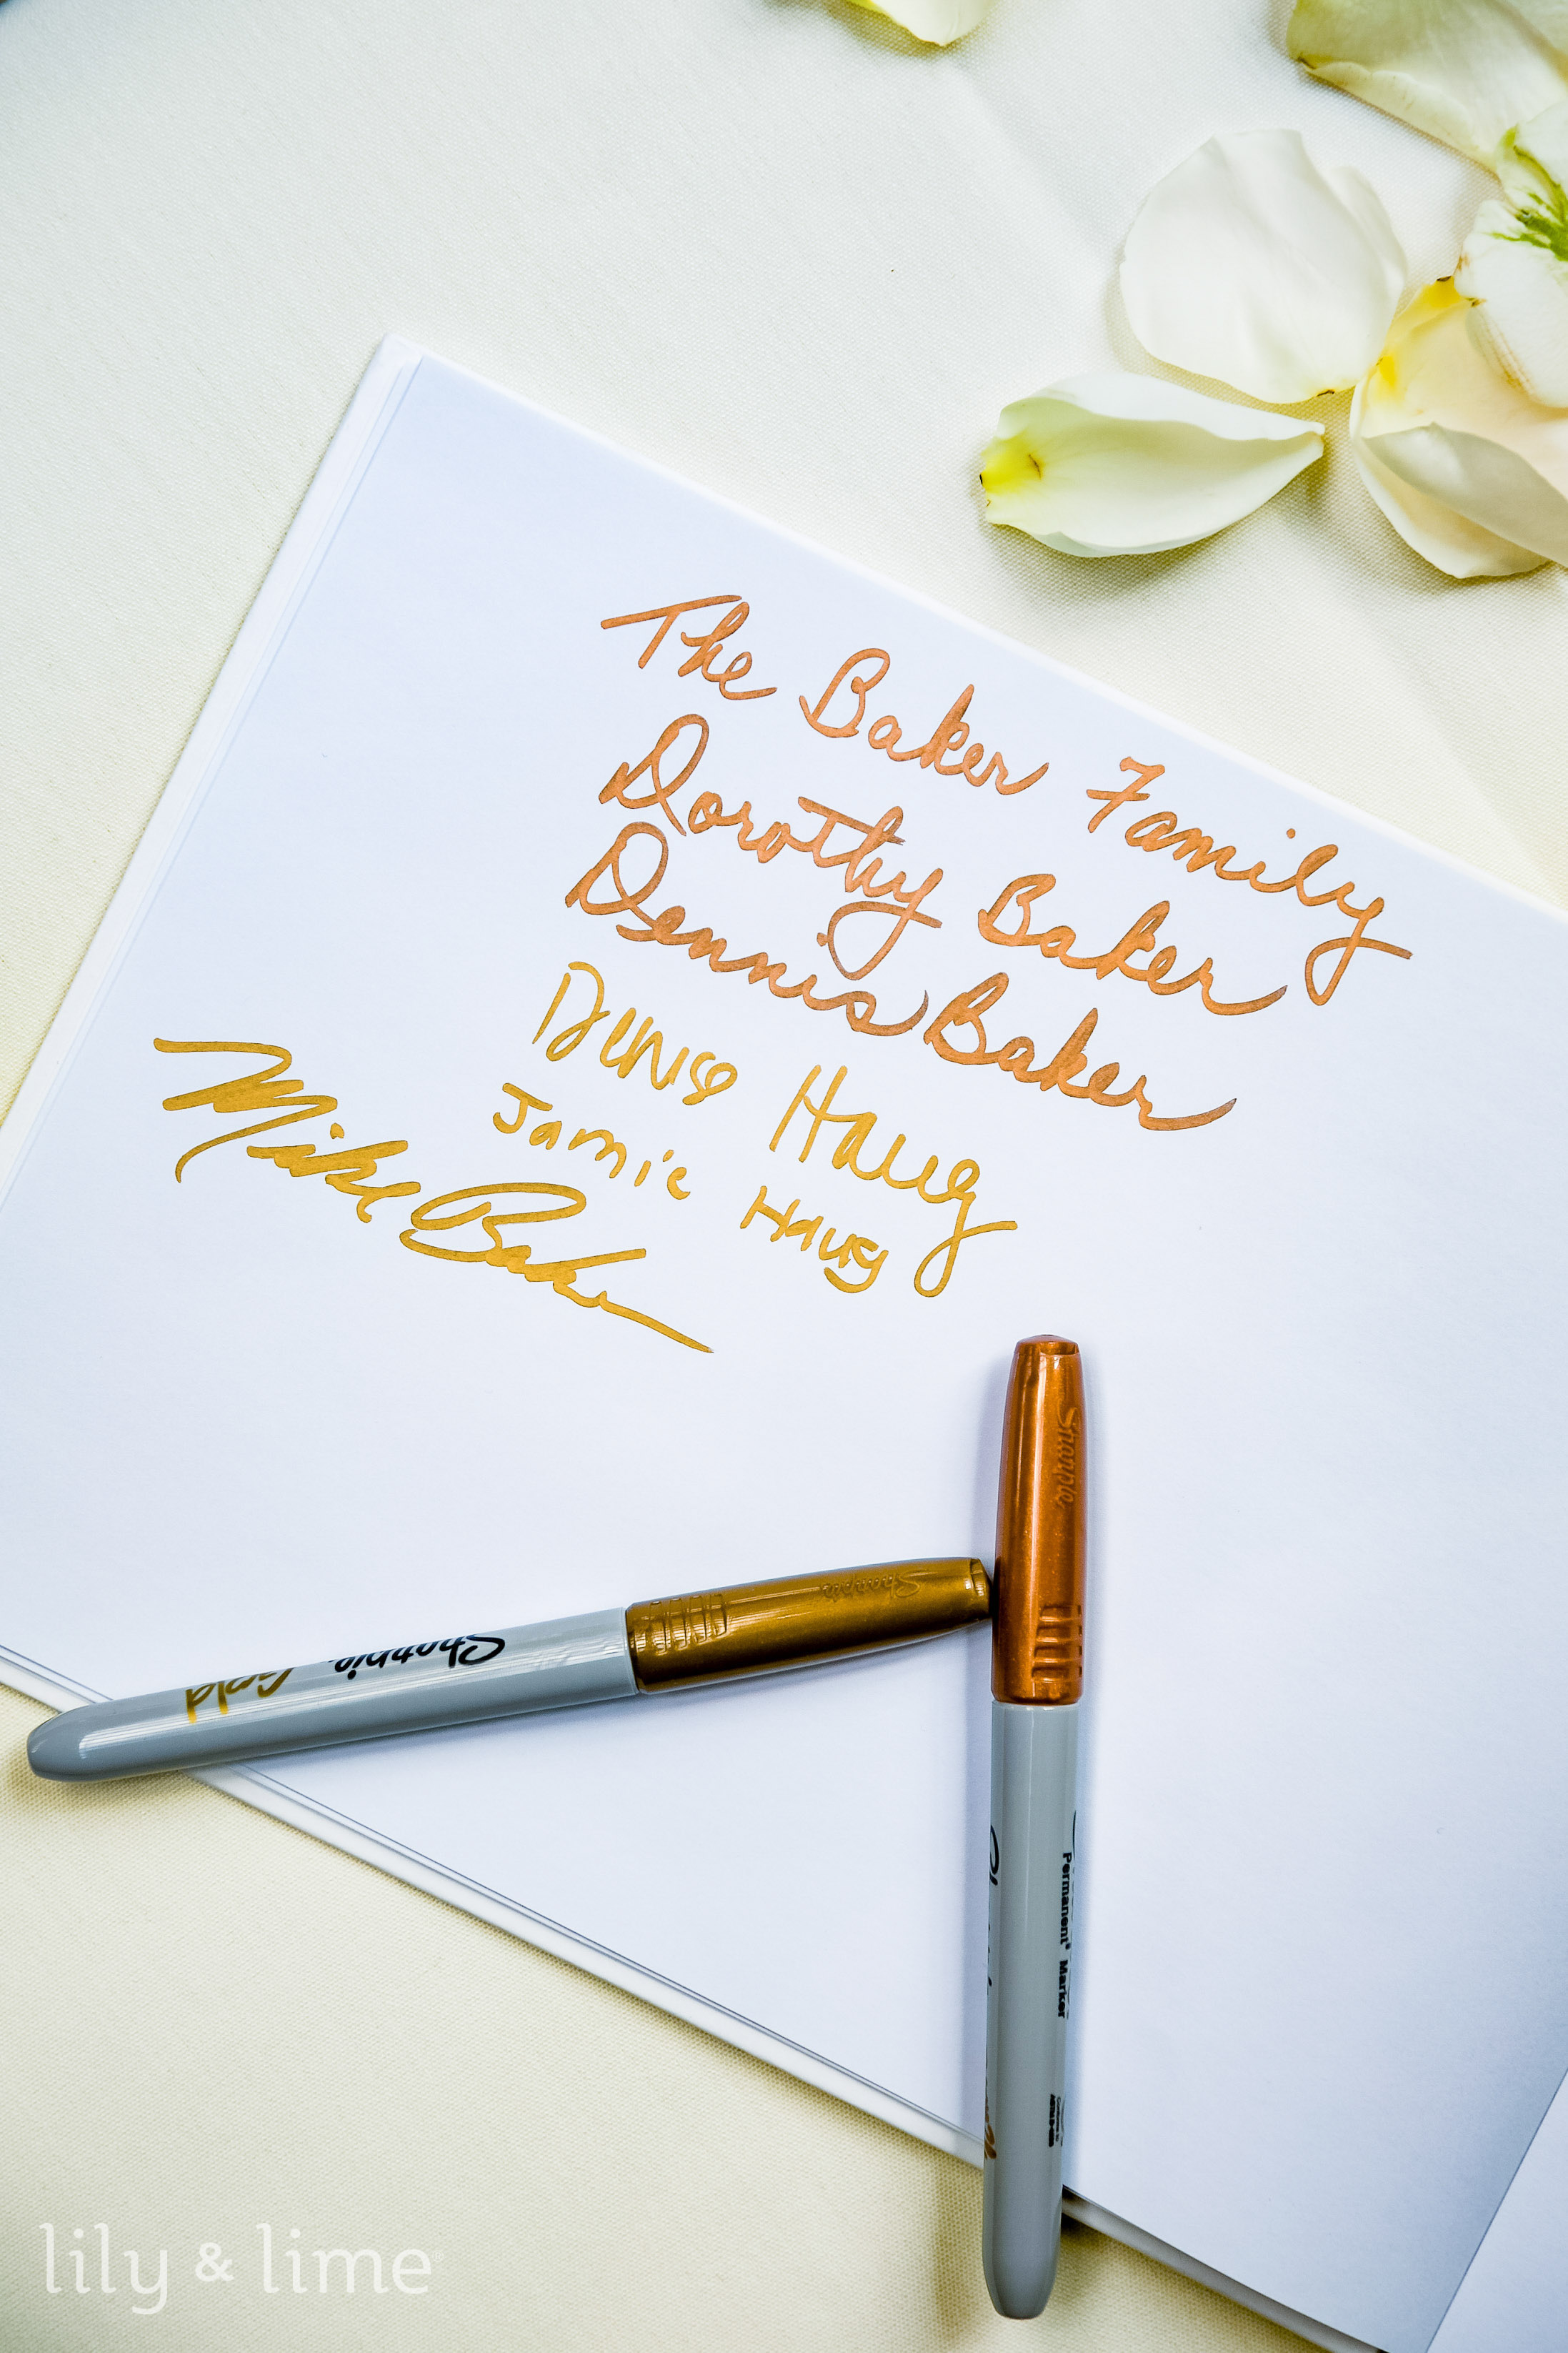 The Baker Family
Dorothy Baker
Dennis Baker
Denise Haug
Jamie Haug
Mike Baker
Sharpie
Sharpie
Sharpie
Gold
Permanent Marker
lily & lime